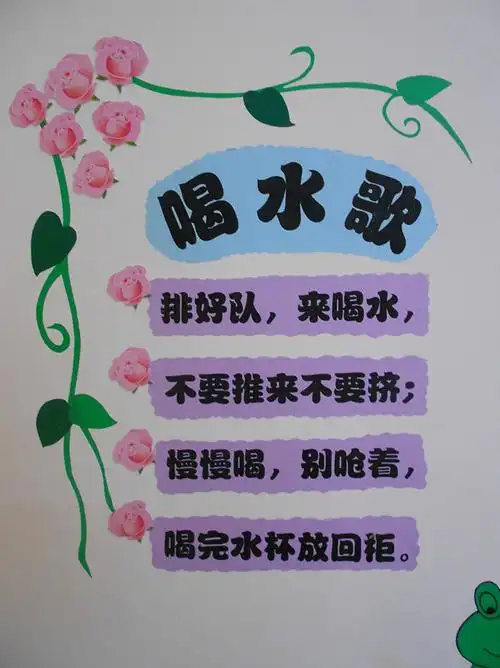 喝水歌
排好队，来喝水，
不要推来不要挤；
慢慢喝，别呛着，
喝完水杯放回柜。